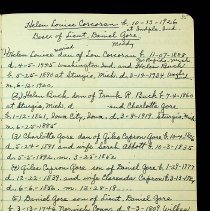 Helen Louise Corcoran b. 10-23-1926
at Indpls, Ind
Desc. of Lieut. Daniel Gore
1) Helen Louise dau of Leon Corcoran b. 11-07-1888
d. 4-05-1945 Washington Ind. and Helen Buck
b. 5-25-1890 at Sturgis, Mich. d. 3-19-1934
m. 6-12-1920.
2) Helen Buck, dau of Frank B. Buck b. 7-4-1860
at Sturgis, Mich, d and Charlotte Gore
b. 1-12-1861 Iowa City, Iowa, d. 3-8-1919 Sturgis, Mich.
m. 6-25-1885
3) Charlotte Gore dau of Giles Capron Gore b.
d. 5-24-1891 and wife Sarah Abbott b. 10-23-1835
d. 5-21-1892, m. 3-25-1862
4) Giles Capron Gore son of Daniel Gore b. 1-28-1777
d. 12-22-1839, and wife Clarenda Capron
d. 6-6-1856, m. 12-28-18
5) Daniel Gore son of Lieut. Daniel Gore
b. 3-13-1746 Norwich, Conn. d. 9-3-1809 Wilkes